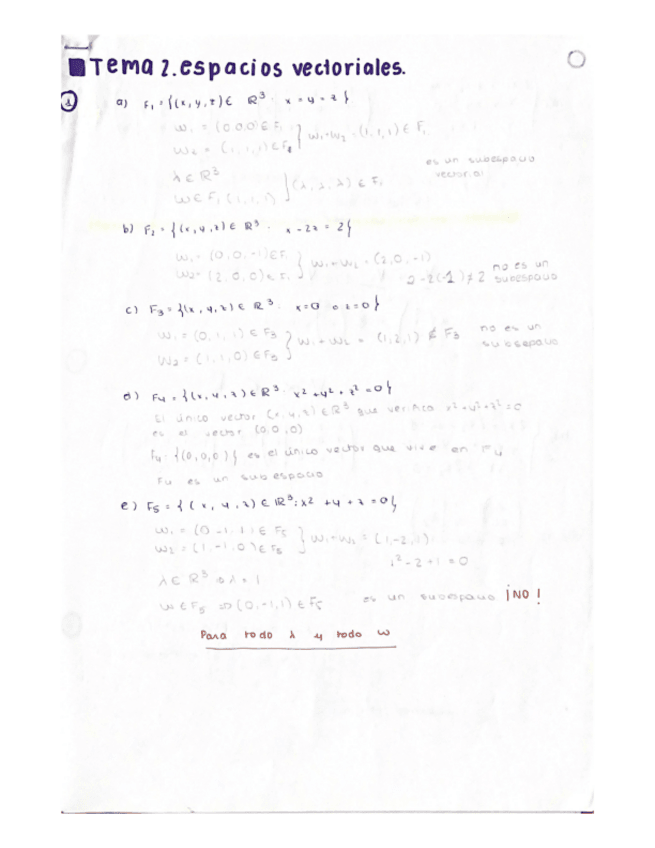 Tema 2. espacios vectoriales.
1 a) F₁ = {(x, y, z) ∈ ℝ³ : x = y = z}
w₁ = (0,0,0) ∈ F₁
w₂ = (1,1,1) ∈ F₁ } w₁+w₂ = (1,1,1) ∈ F₁
es un subespacio
vectorial
λ ∈ ℝ³
w ∈ F₁ (1,1,1) } (λ, λ, λ) ∈ F₁
b) F₂ = {(x, y, z) ∈ ℝ³ : x - 2z = 2}
w₁ = (0,0,-1) ∈ F₂
w₂ = (2,0,0) ∈ F₂ } w₁+w₂ = (2,0,-1)
2-2(-1) ≠ 2
no es un
subespacio
c) F₃ = {(x, y, z) ∈ ℝ³ : x=0 o z=0}
w₁ = (0,1,1) ∈ F₃
w₂ = (1,1,0) ∈ F₃ } w₁+w₂ = (1,2,1) ∉ F₃
no es un
subsepauo
d) F₄ = {(x, y, z) ∈ ℝ³ : x² + y² + z² = 0}
El único vector (x, y, z) ∈ ℝ³ que verifica x²+y²+z²=0
es el vector (0,0,0)
F₄ = {(0,0,0)} es el único vector que vive en F₄
F₄ es un subespacio
e) F₅ = {(x, y, z) ∈ ℝ³ : x² + y + z = 0}
w₁ = (0,-1,1) ∈ F₅
w₂ = (1,-1,0) ∈ F₅ } w₁+w₂ = (1,-2,1)
1² - 2 + 1 = 0
λ ∈ ℝ³ λ = 1
w ∈ F₅ ⇒ (0,-1,1) ∈ F₅ es un subespacio ¡NO!
Para todo λ y todo w